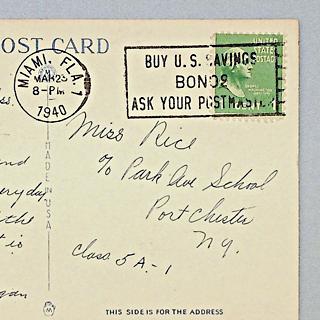 POST CARD
MIAMI, FLA. 1
MAR 23
8-PM
1940
BUY U.S. SAVINGS
BONDS
ASK YOUR POSTMASTER
UNITED
STATES
POSTAGE
Miss Rice
c/o Park Ave School
Port Chester
N.Y.
Class 5A-1
and
everyday
the
is
MADE IN USA
THIS SIDE IS FOR THE ADDRESS